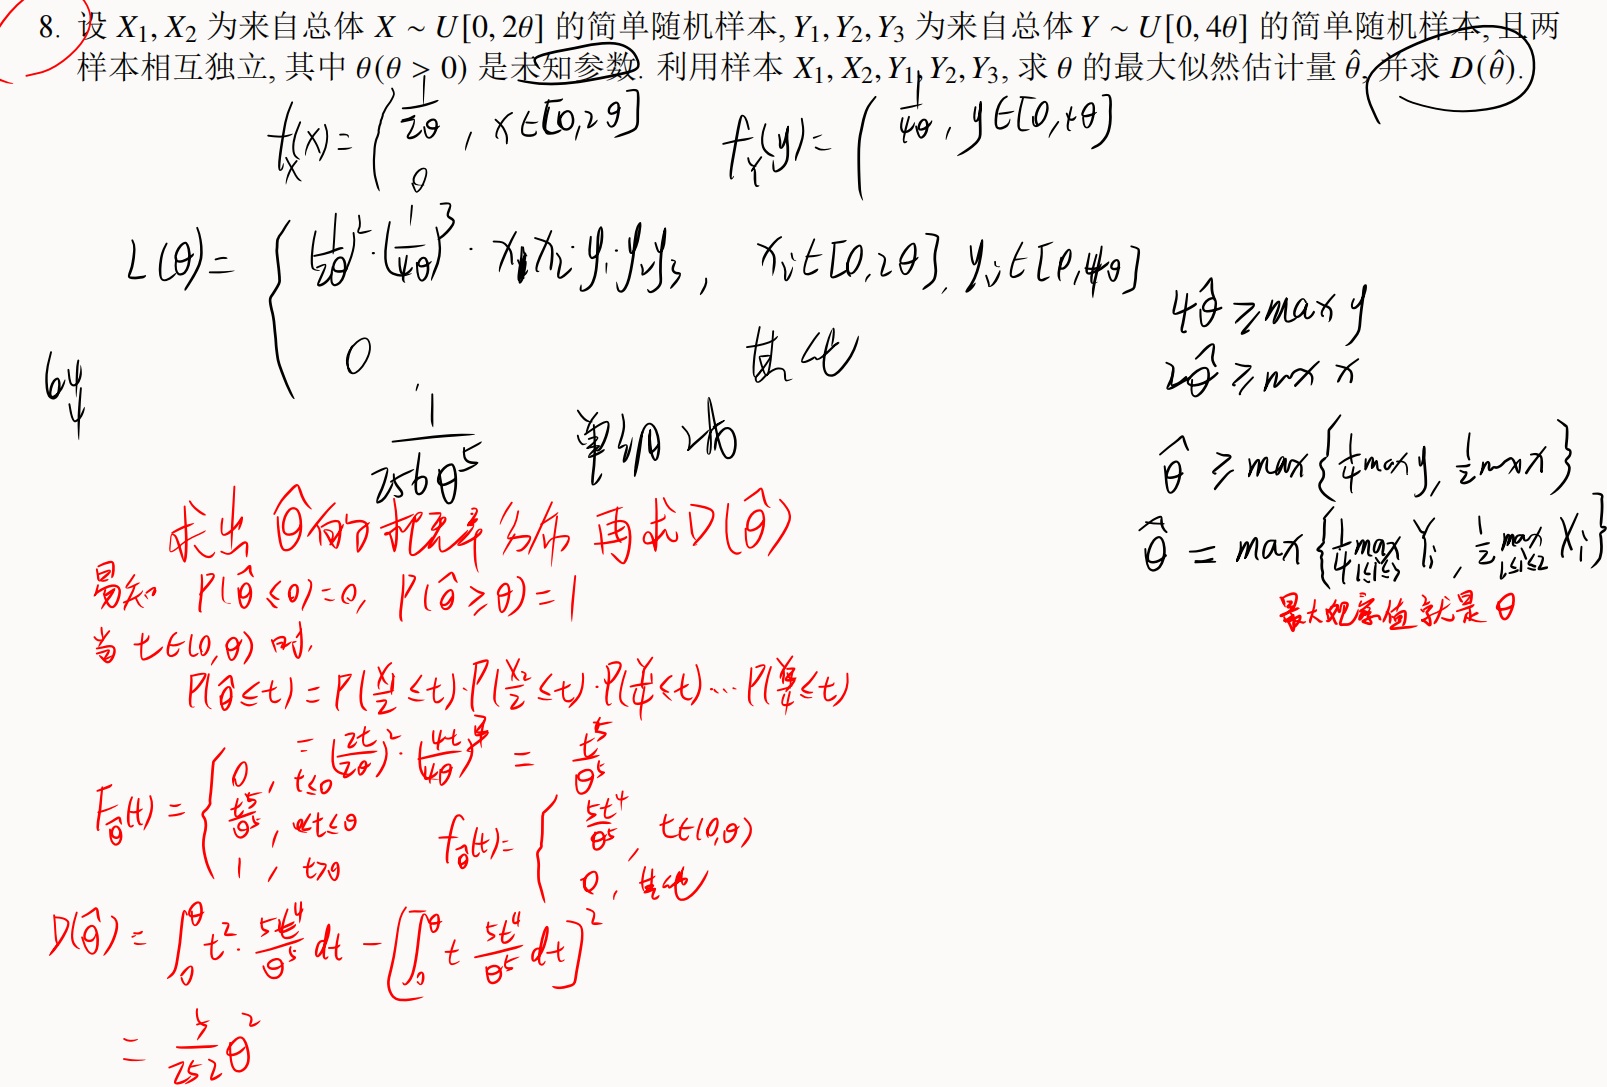 8. 设 X₁, X₂ 为来自总体 X ~ U[0, 2θ] 的简单随机样本, Y₁, Y₂, Y₃ 为来自总体 Y ~ U[0, 4θ] 的简单随机样本, 且两
样本相互独立, 其中 θ(θ > 0) 是未知参数. 利用样本 X₁, X₂, Y₁, Y₂, Y₃, 求 θ 的最大似然估计量 θ̂, 并求 D(θ̂).
f_X(x) = { 1/2θ , x∈[0,2θ]
0
f_Y(y) = { 1/4θ , y∈[0,4θ]
L(θ) = { (1/2θ)²·(1/4θ)³ · x₁x₂·y₁·y₂y₃ , xᵢ∈[0,2θ], yᵢ∈[0,4θ]
0 其他
64
4
1/256θ⁵ 单调减
4θ̂ ≥ max y
2θ̂ ≥ max x
θ̂ ≥ max{1/4 max y, 1/2 max x}
θ̂ = max{1/4 max_{1≤i≤3} Yᵢ , 1/2 max_{1≤i≤2} Xᵢ}
最大观察值就是θ
求出 θ̂ 的概率分布 再求 D(θ̂)
易知 P(θ̂≤0)=0, P(θ̂≥θ)=1
当 t∈(0,θ) 时,
P(θ̂≤t) = P(X₁/2≤t)·P(X₂/2≤t)·P(Y₁/4≤t)…P(Y₃/4≤t)
= (2t/2θ)²·(4t/4θ)³ = t⁵/θ⁵
F_θ̂(t) = { 0 , t≤0
t⁵/θ⁵ , 0<t≤θ
1 , t>θ
f_θ̂(t) = { 5t⁴/θ⁵ , t∈(0,θ)
0 , 其他
D(θ̂) = ∫₀^θ t²·5t⁴/θ⁵ dt − [∫₀^θ t 5t⁴/θ⁵ dt]²
= 5/252 θ²